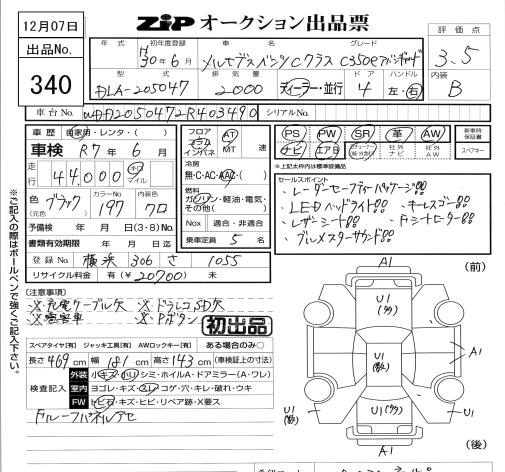 12月07日
ZIP オークション出品票
出品No.
340
評価点
3.5
内装
B
年式 初年度登録 車名 グレード
H30年6月 メルセデスベンツCクラス C350eアバンギャルド
型式 排気量 ドア ハンドル
DLA-205047 2000 ディーラー・並行 4 左・右
車台No. WDD2050472R403490 シリアルNo.
車歴 自家用・レンタ・( )
車検 R7年 6月
走行 44,000 キロ マイル
色 (元色) ブラック カラーNo. 197 内装色 クロ
予備検 年 月 日(3・8)No.
書類有効期限 年 月 日迄
登録No. 横浜 306 さ 1055
リサイクル料金 有(¥20700) 未
フロア コラム インパネ AT MT 速
冷房
無・C・AC・AAC・( )
燃料
ガソリン・軽油・電気・その他( )
Nox 適合・非適合
乗車定員 5 名
PS PW SR 革 AW
ナビ エアB 社外ナビ 社外AW
新車時保証書
スペアキー
※上記太枠内は標準装備品
セールスポイント
・レーダーセーフティーパッケージ!!
・LEDヘッドライト!! ・キーレスゴー!!
・レザーシート!! ・前シートヒーター!!
・ブルメスターサウンド!!
[注意事項]
※充電ケーブル欠 ※ドラレコSD欠
※喫客車 ※Pボタン
初出品
スペアタイヤ[有] ジャッキ工具[有] AWロックキー[有] ある場合のみ○
長さ469cm 幅181cm 高さ143cm (車検証上の寸法)
検査記入
外装 小キズ・小凹・シミ・ホイルA・ドアミラー(A・ワレ)
室内 ヨゴレ・キズ・スレ・コゲ・穴・キレ・破れ・ウキ
FW トビ石・キズ・ヒビ・リペア跡・X要ス
ルーフパネルアセ
※ご記入の際はボールペンで強くご記入下さい。
A1
(前)
U1
(タワ)
A1
U1
U1 (タワ)
U1
(タワ)
U1
(タワ)
A1
(後)